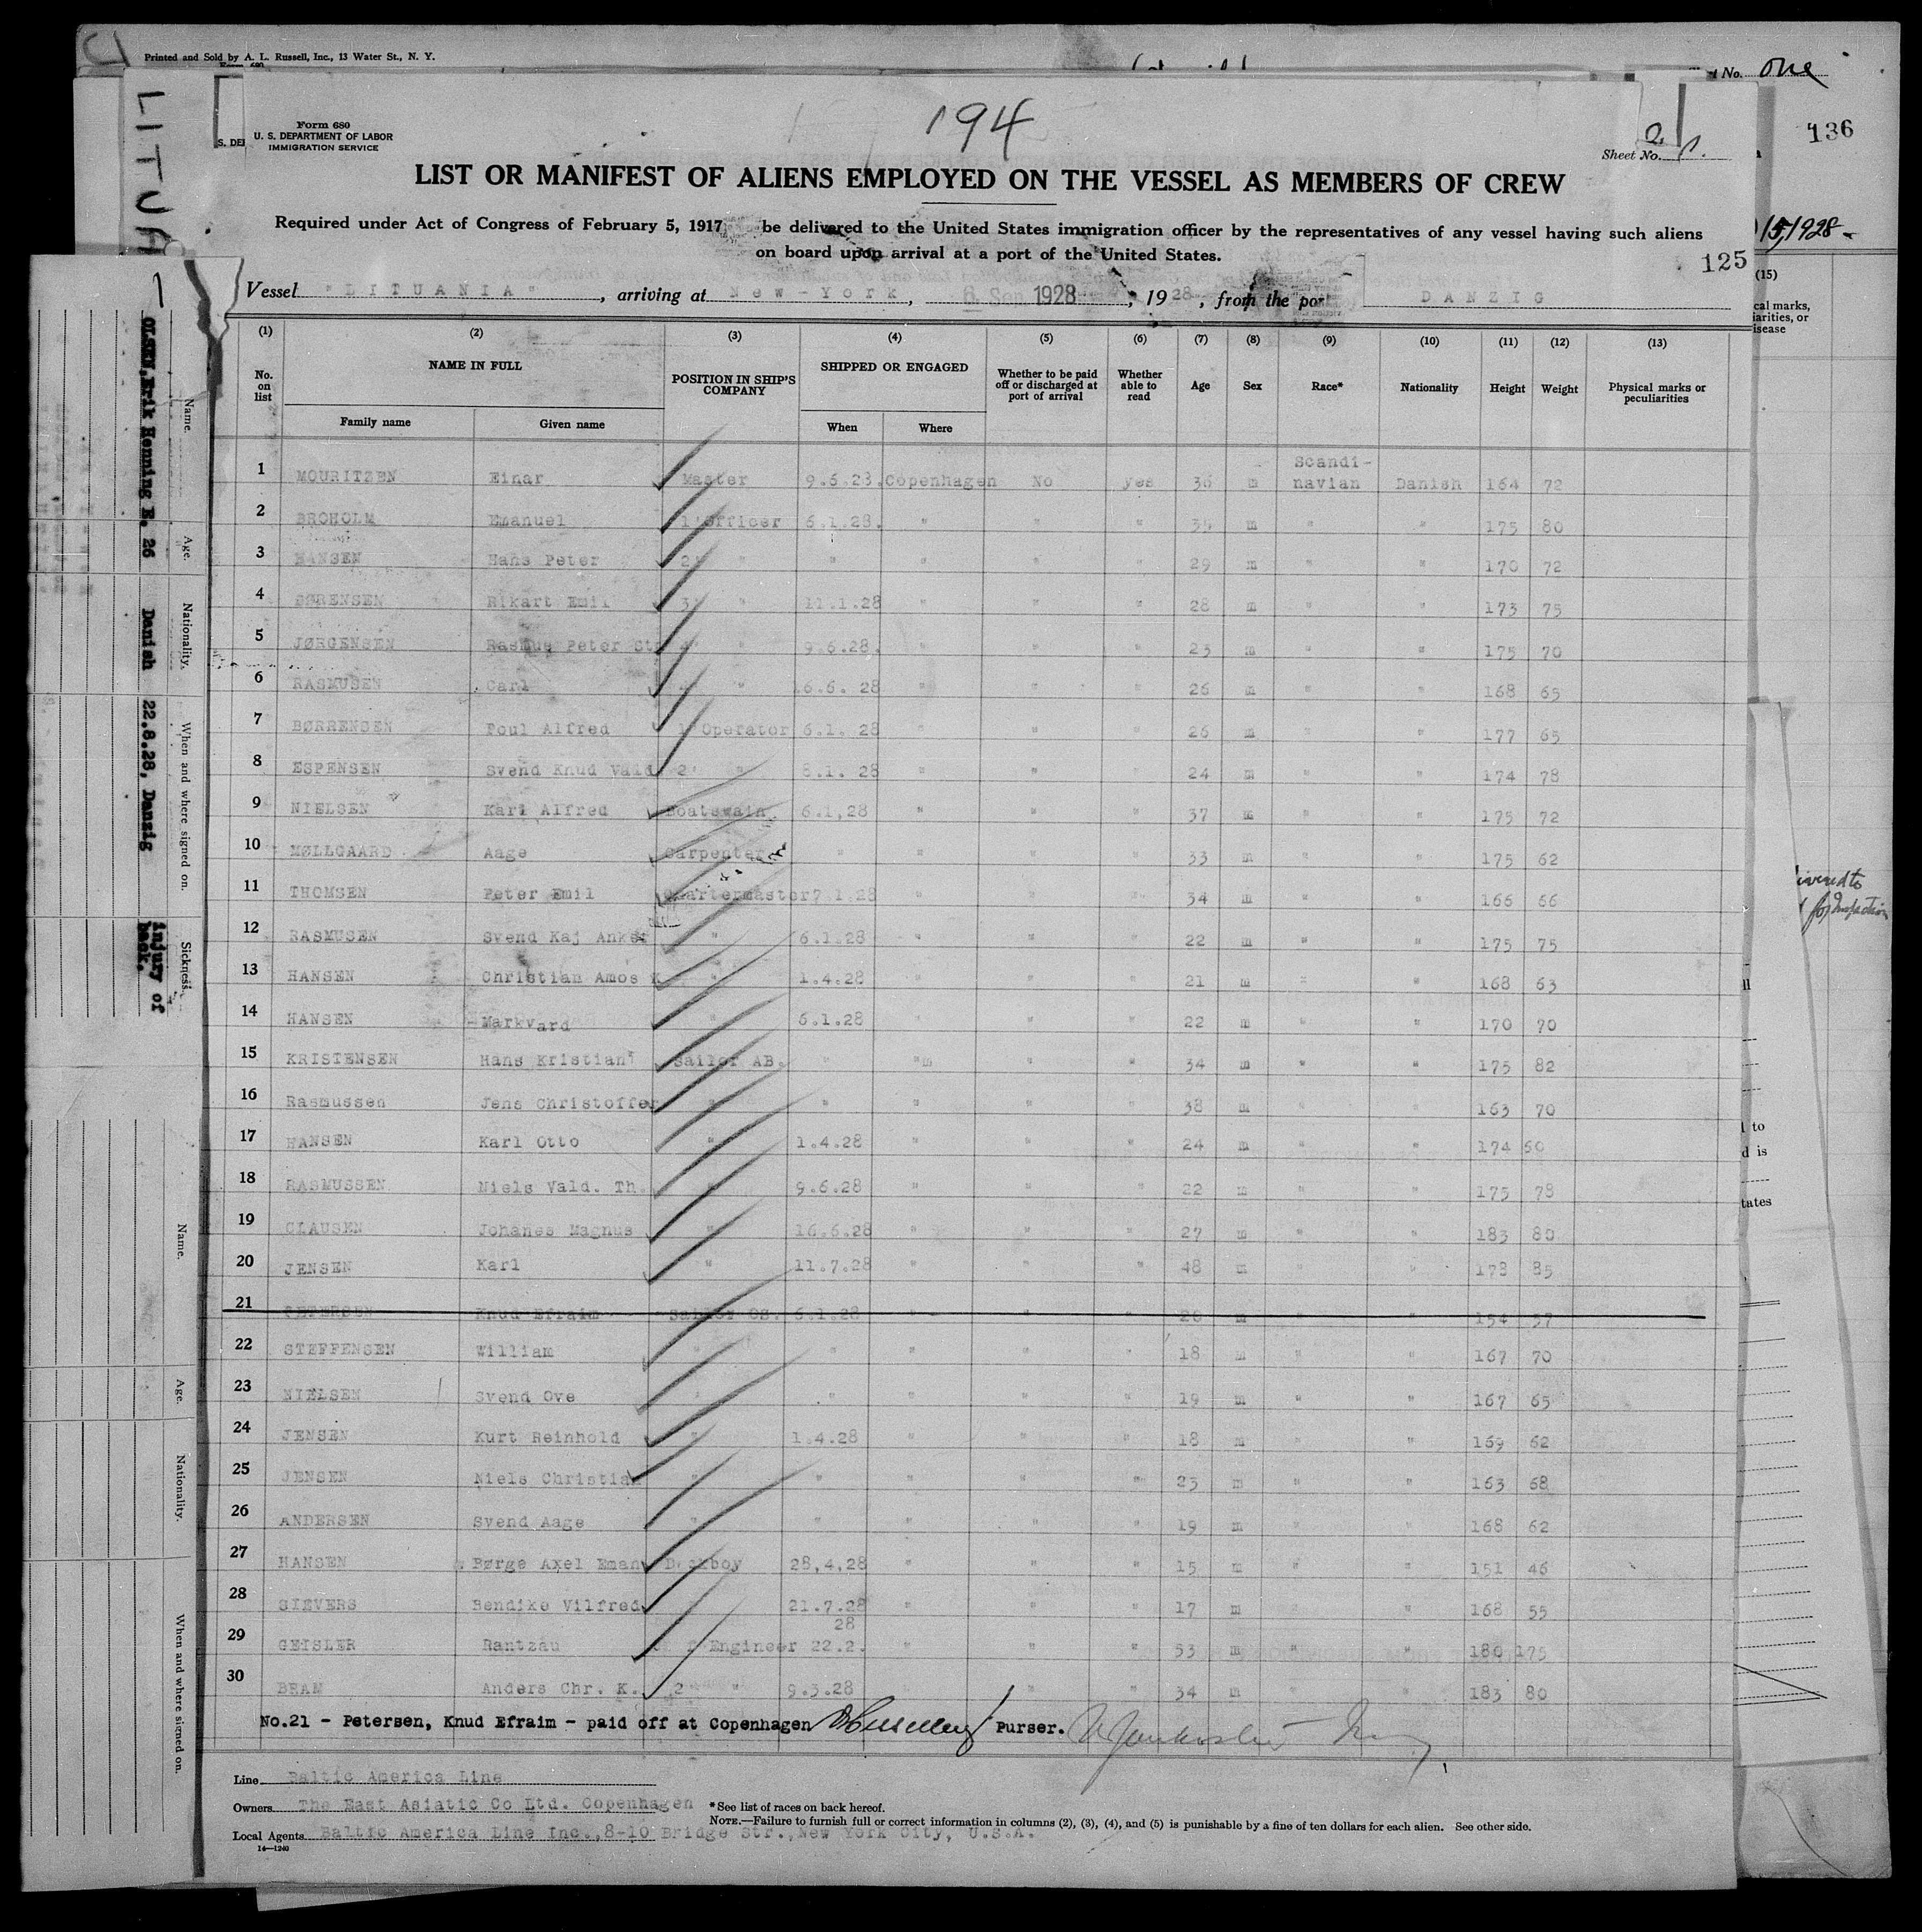 Printed and Sold by A. L. Russell, Inc., 13 Water St., N. Y.
No. one
136
15, 1928
(15)
cal marks,
iarities, or
isease
LITUA
Form 680
U. S. DEPARTMENT OF LABOR
IMMIGRATION SERVICE
S. DE
194
2
Sheet No.
LIST OR MANIFEST OF ALIENS EMPLOYED ON THE VESSEL AS MEMBERS OF CREW
Required under Act of Congress of February 5, 1917 be delivered to the United States immigration officer by the representatives of any vessel having such aliens
on board upon arrival at a port of the United States.
125
Vessel "LITUANIA", arriving at New-York, 6 Sep 1928, 1928, from the port DANZIG
(1) (2) (3) (4) (5) (6) (7) (8) (9) (10) (11) (12) (13)
No. on list NAME IN FULL POSITION IN SHIP'S COMPANY SHIPPED OR ENGAGED Whether to be paid off or discharged at port of arrival Whether able to read Age Sex Race* Nationality Height Weight Physical marks or peculiarities
Family name Given name When Where
1 MOURITZEN Einar Master 9.6.28. Copenhagen No yes 36 m Scandi-navian Danish 164 72
2 BROHOLM Emanuel 1 Officer 6.1.28. " " " 35 m " " 175 80
3 HANSEN Hans Peter 2 " " " " " 29 m " " 170 72
4 SØRENSEN Rikart Emil 3 " 11.1.28 " " " 28 m " " 173 75
5 JØRGENSEN Rasmus Peter St 4 " 9.6.28. " " " 23 m " " 175 70
6 RASMUSEN Carl " 6.6. 28 " " " 26 m " " 168 65
7 BØRRENSEN Poul Alfred 1 Operator 6.1. 28 " " " 26 m " " 177 65
8 ESPENSEN Svend Knud Vald 2 " 8.1. 28 " " " 24 m " " 174 78
9 NIELSEN Karl Alfred Boatswain 6.1,28 " " " 37 m " " 175 72
10 MØLLGAARD Aage Carpenter " " " " 33 m " " 175 62
11 THOMSEN Peter Emil Quartermaster 7.1.28 " " " 34 m " " 166 66
12 RASMUSEN Svend Kaj Anker " 6.1.28 " " " 22 m " " 175 75
13 HANSEN Christian Amos K " 1.4.28 " " " 21 m " " 168 63
14 HANSEN Markvard " 6.1.28 " " " 22 m " " 170 70
15 KRISTENSEN Hans Kristian Sailor AB. " "m " " 34 m " " 175 82
16 Rasmussen Jens Christoffer " " " " " 38 m " " 163 70
17 HANSEN Karl Otto " 1.4.28 " " " 24 m " " 174 60
18 RASMUSSEN Niels Vald. Th. " 9.6.28 " " " 22 m " " 175 78
19 CLAUSEN Johanes Magnus " 16.6.28 " " " 27 m " " 183 80
20 JENSEN Karl " 11.7.28 " " " 48 m " " 178 85
21 PETERSEN Knud Efraim Sailor OS. 6.1.28 " " " 20 m " " 154 57
22 STEFFENSEN William " " " " " 18 m " " 167 70
23 NIELSEN Svend Ove " " " " " 19 m " " 167 65
24 JENSEN Kurt Reinhold " 1.4.28 " " " 18 m " " 169 62
25 JENSEN Niels Christian " " " " " 23 m " " 163 68
26 ANDERSEN Svend Aage " " " " " 19 m " " 168 62
27 HANSEN Børge Axel Eman Deckboy 28,4,28 " " " 15 m " " 151 46
28 SIEVERS Bendike Vilfred 21.7.28 " " " 17 m " " 168 55
29 GEISLER Rantzau Engineer 22.2. 28 " " " 53 m " " 180 175
30 BRAM Anders Chr. K. 2 " 9.3.28 " " " 34 m " " 183 80
No.21 - Petersen, Knud Efraim - paid off at Copenhagen Purser.
Line Baltic America Line
Owners The East Asiatic Co Ltd. Copenhagen
Local Agents Baltic America Line Inc., 8-10 Bridge Str., New York City, U.S.A.
14—1240
*See list of races on back hereof.
NOTE.—Failure to furnish full or correct information in columns (2), (3), (4), and (5) is punishable by a fine of ten dollars for each alien. See other side.
Name. Age. Nationality. When and where signed on. Sickness.
OLSEN, Erik Henning E. 26 Danish 22.8.28, Danzig injury of back.
Name. Age. Nationality. When and where signed on.
for Inspection
to
d is
tates